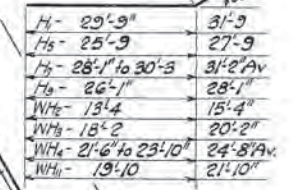 H₁- 29'-9" 31'-9
H₅- 25'-9 27'-9
H₇- 28'-1" to 30'-3 31'-2"Av
H₉- 26'-1" 28'-1"
WH₂- 13'4 15'-4"
WH₃- 18'-2 20'-2"
WH₄- 21'-6" to 23'-10" 24'-8"Av.
WH₁₁- 19'-10 21'-10"